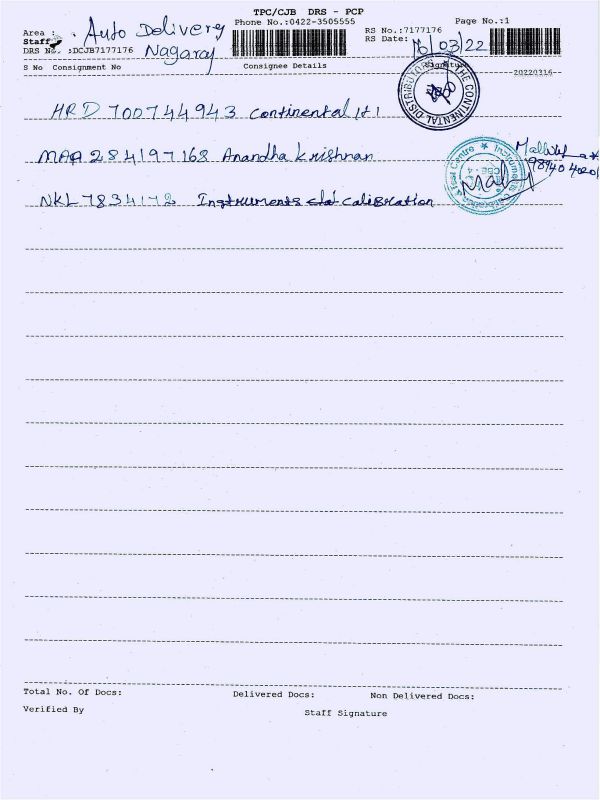 TPC/CJB DRS - PCP
Phone No.:0422-3505555
Page No.:1
Area : Auto Delivery
Staff : Nagaraj
DRS No. :DCJB7177176
RS No.:7177176
RS Date: 16/03/22
S No Consignment No
Consignee Details
Signature
20220316
HRD 700744943 Continental
THE CONTINENTAL DISTRIBUTORS
MAA 284197168 Anandha Krishnan
Instruments Calibration & Test Centre
NKL 7834172 Instruments and calibration
Total No. Of Docs:
Delivered Docs:
Non Delivered Docs:
Verified By
Staff Signature